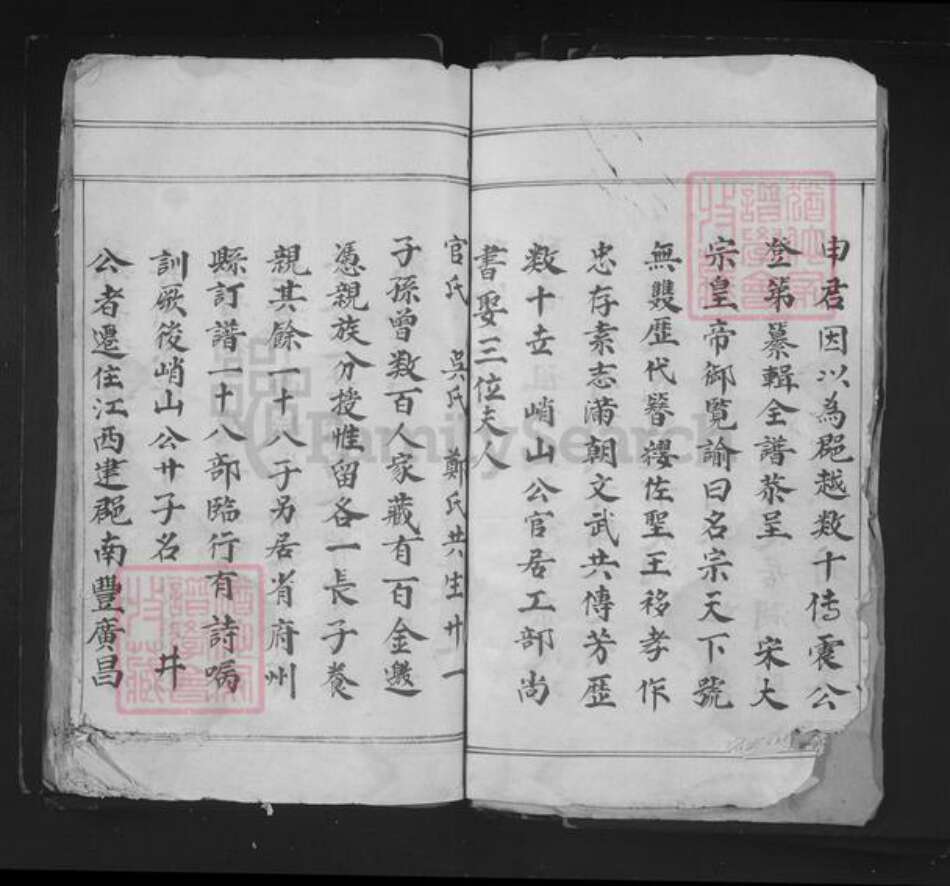 申君因以為郡越数十傳震公
登第纂輯全譜恭呈 宋太
宗皇帝御覽諭曰名宗天下號
無雙歷代簪纓佐聖王移孝作
忠存素志滿朝文武共傳芳歷
数十世峭山公官居工部尚
書娶三位夫人
官氏 吳氏 鄭氏共生廿一
子孫曾数百人家藏有百金邀
憑親族分授惟留各一長子養
親其餘一十八子另居省府州
縣訂譜一十八部臨行有詩嘱
訓厥後峭山公廿子名 井
公者遷住江西建郡南豐廣昌
FamilySearch